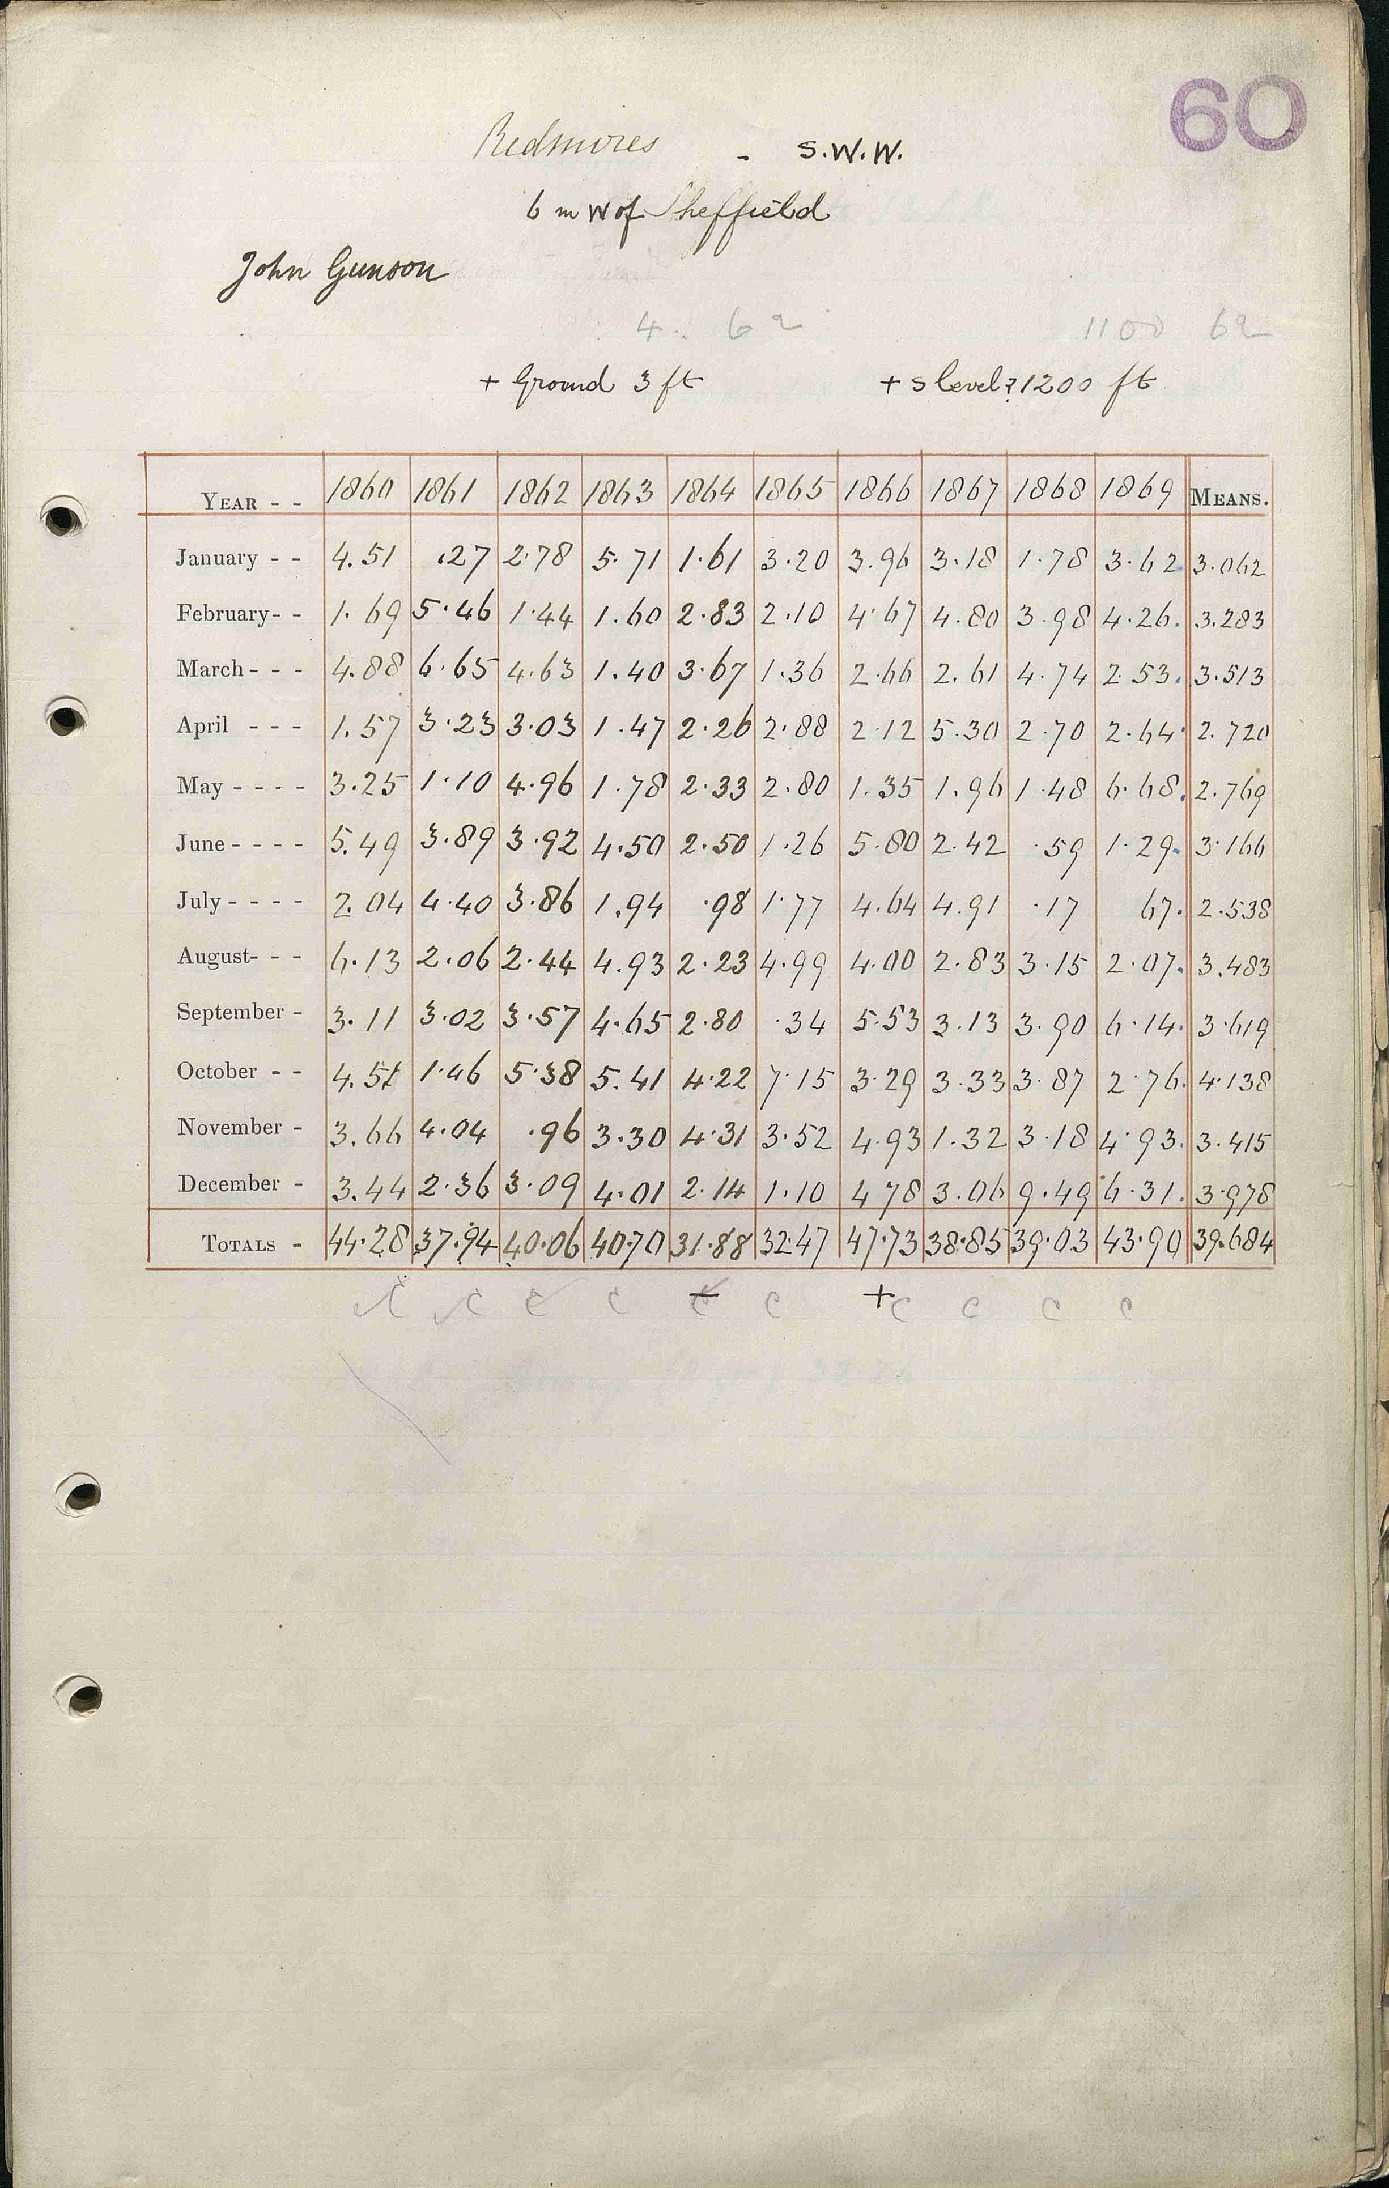 60
Redmires - S.W.W.
6 m W of Sheffield
John Gunson
4. 62 1100 62
+ Ground 3 ft + S level ? 1200 ft
YEAR - - 1860 1861 1862 1863 1864 1865 1866 1867 1868 1869 MEANS.
January - - 4.51 .27 2.78 5.71 1.61 3.20 3.96 3.18 1.78 3.62 3.062
February - - 1.69 5.46 1.44 1.60 2.83 2.10 4.67 4.80 3.98 4.26. 3.283
March - - - 4.88 6.65 4.63 1.40 3.67 1.36 2.66 2.61 4.74 2.53. 3.513
April - - - 1.57 3.23 3.03 1.47 2.26 2.88 2.12 5.30 2.70 2.64. 2.720
May - - - - 3.25 1.10 4.96 1.78 2.33 2.80 1.35 1.96 1.48 6.68. 2.769
June - - - - 5.49 3.89 3.92 4.50 2.50 1.26 5.80 2.42 .59 1.29. 3.166
July - - - - 2.04 4.40 3.86 1.94 .98 1.77 4.64 4.91 .17 67. 2.538
August - - - 6.13 2.06 2.44 4.93 2.23 4.99 4.00 2.83 3.15 2.07. 3.483
September - 3.11 3.02 3.57 4.65 2.80 .34 5.53 3.13 3.90 6.14. 3.619
October - - 4.51 1.46 5.38 5.41 4.22 7.15 3.29 3.33 3.87 2.76. 4.138
November - 3.66 4.04 .96 3.30 4.31 3.52 4.93 1.32 3.18 4.93. 3.415
December - 3.44 2.36 3.09 4.01 2.14 1.10 4.78 3.06 9.49 6.31. 3.978
TOTALS - 44.28 37.94 40.06 40.70 31.88 32.47 47.73 38.85 39.03 43.90 39.684
C C C C C C + C C C C